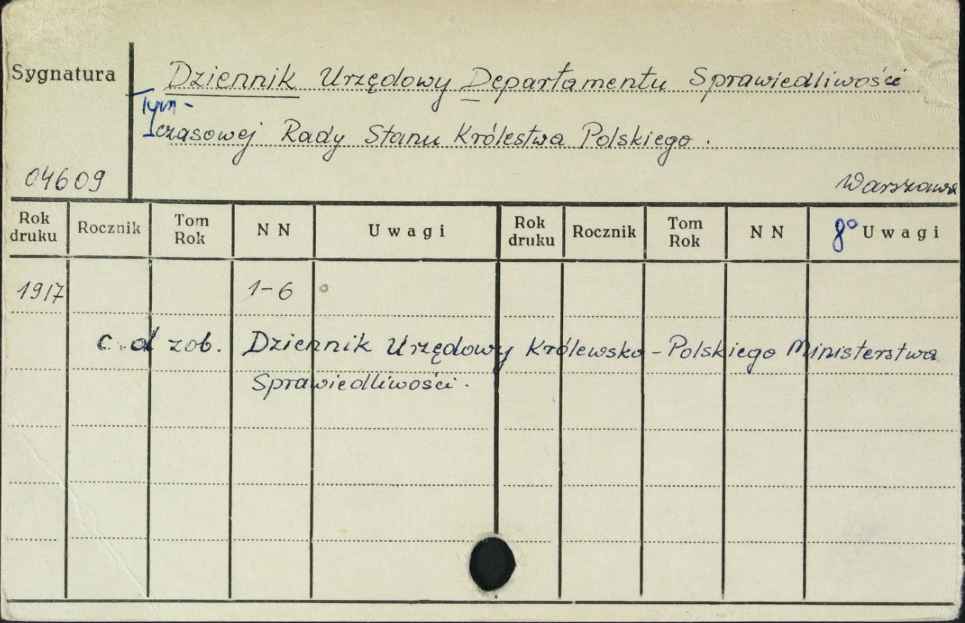 Sygnatura
Dziennik Urzędowy Departamentu Sprawiedliwości
Tym-
czasowej Rady Stanu Królestwa Polskiego.
04609
Warszawa
Rok druku Rocznik Tom Rok NN Uwagi Rok druku Rocznik Tom Rok NN 8° Uwagi
1917 1-6
c.d zob. Dziennik Urzędowy Królewsko-Polskiego Ministerstwa
Sprawiedliwości.